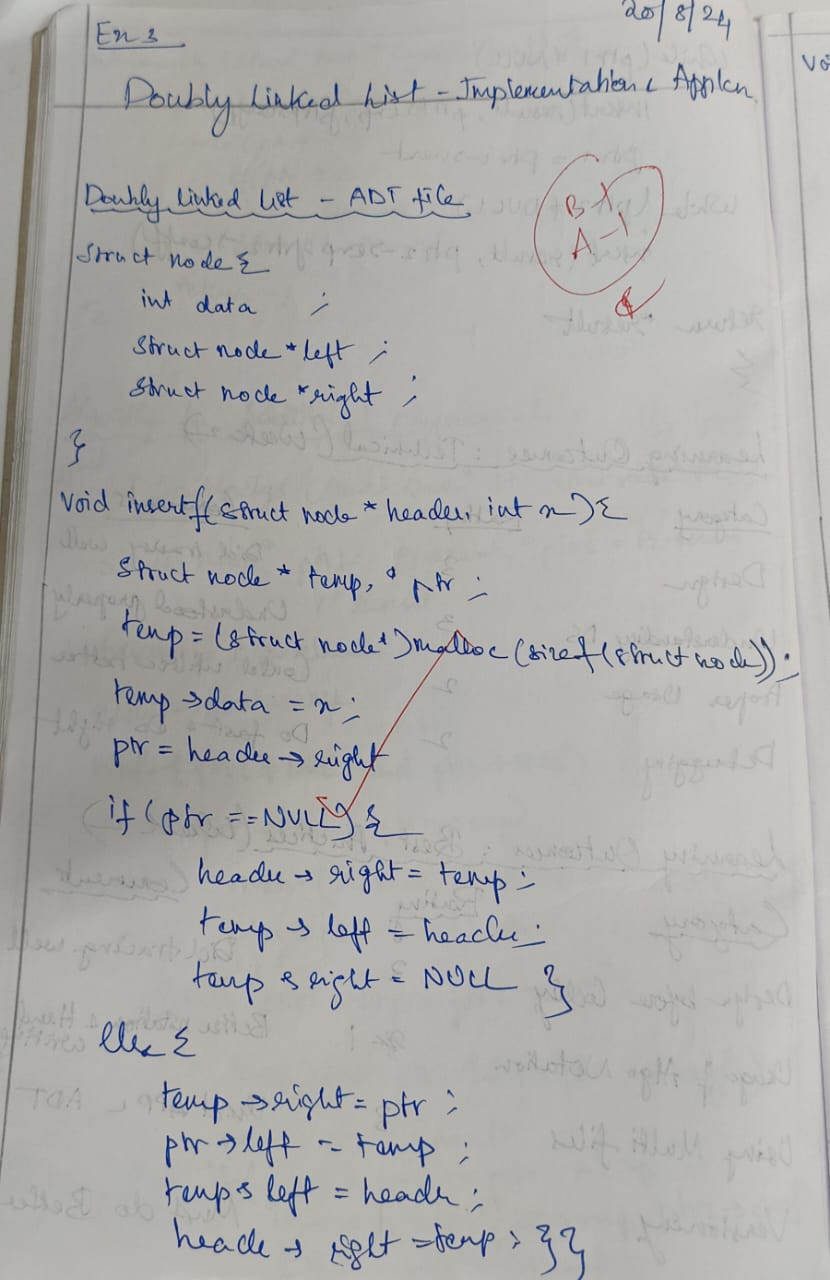 20/8/24
Ex 3
Doubly Linked List - Implementation & Applcn
Doubly linked list - ADT file
B
A-1
struct node {
int data ;
struct node *left ;
struct node *right ;
}
void insertf(struct node * header, int x) {
struct node * temp, * ptr ;
temp = (struct node*)malloc(sizeof(struct node));
temp →data = x;
ptr = header → right
if (ptr == NULL) {
header → right = temp;
temp → left = header;
temp → right = NULL }
else {
temp → right = ptr ;
ptr → left = temp ;
temp → left = header ;
header → right = temp ; }}
vo